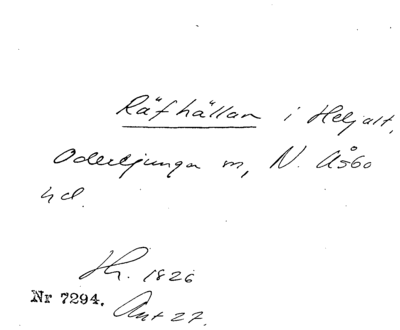 Räfhällan i Heljalt,
Oderljunga m, N. Åsbo
hd.
Hr. 1826
Nr 7294. Ant 27.